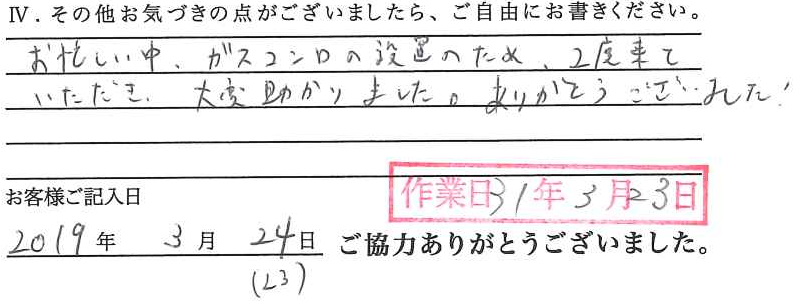 Ⅳ．その他お気づきの点がございましたら、ご自由にお書きください。
お忙しい中、ガスコンロの設置のため、2度来て
いただき、大変助かりました。ありがとうございました!
お客様ご記入日
作業日31年3月23日
2019年 3月 24日 ご協力ありがとうございました。
(23)